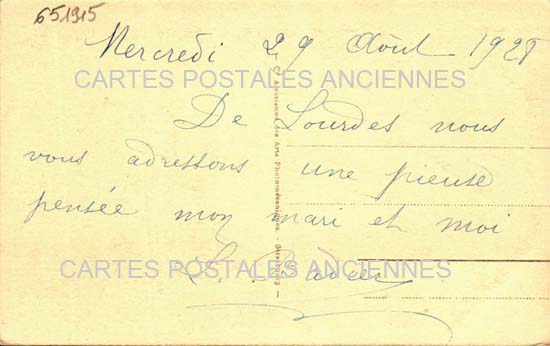 651915
Mercredi 29 Août 1928
CARTES POSTALES ANCIENNES
De Lourdes nous
vous adressons une pieuse
pensée mon mari et moi
CARTES POSTALES ANCIENNES
Cie Alsacienne des Arts Photomécaniques - Strasbourg